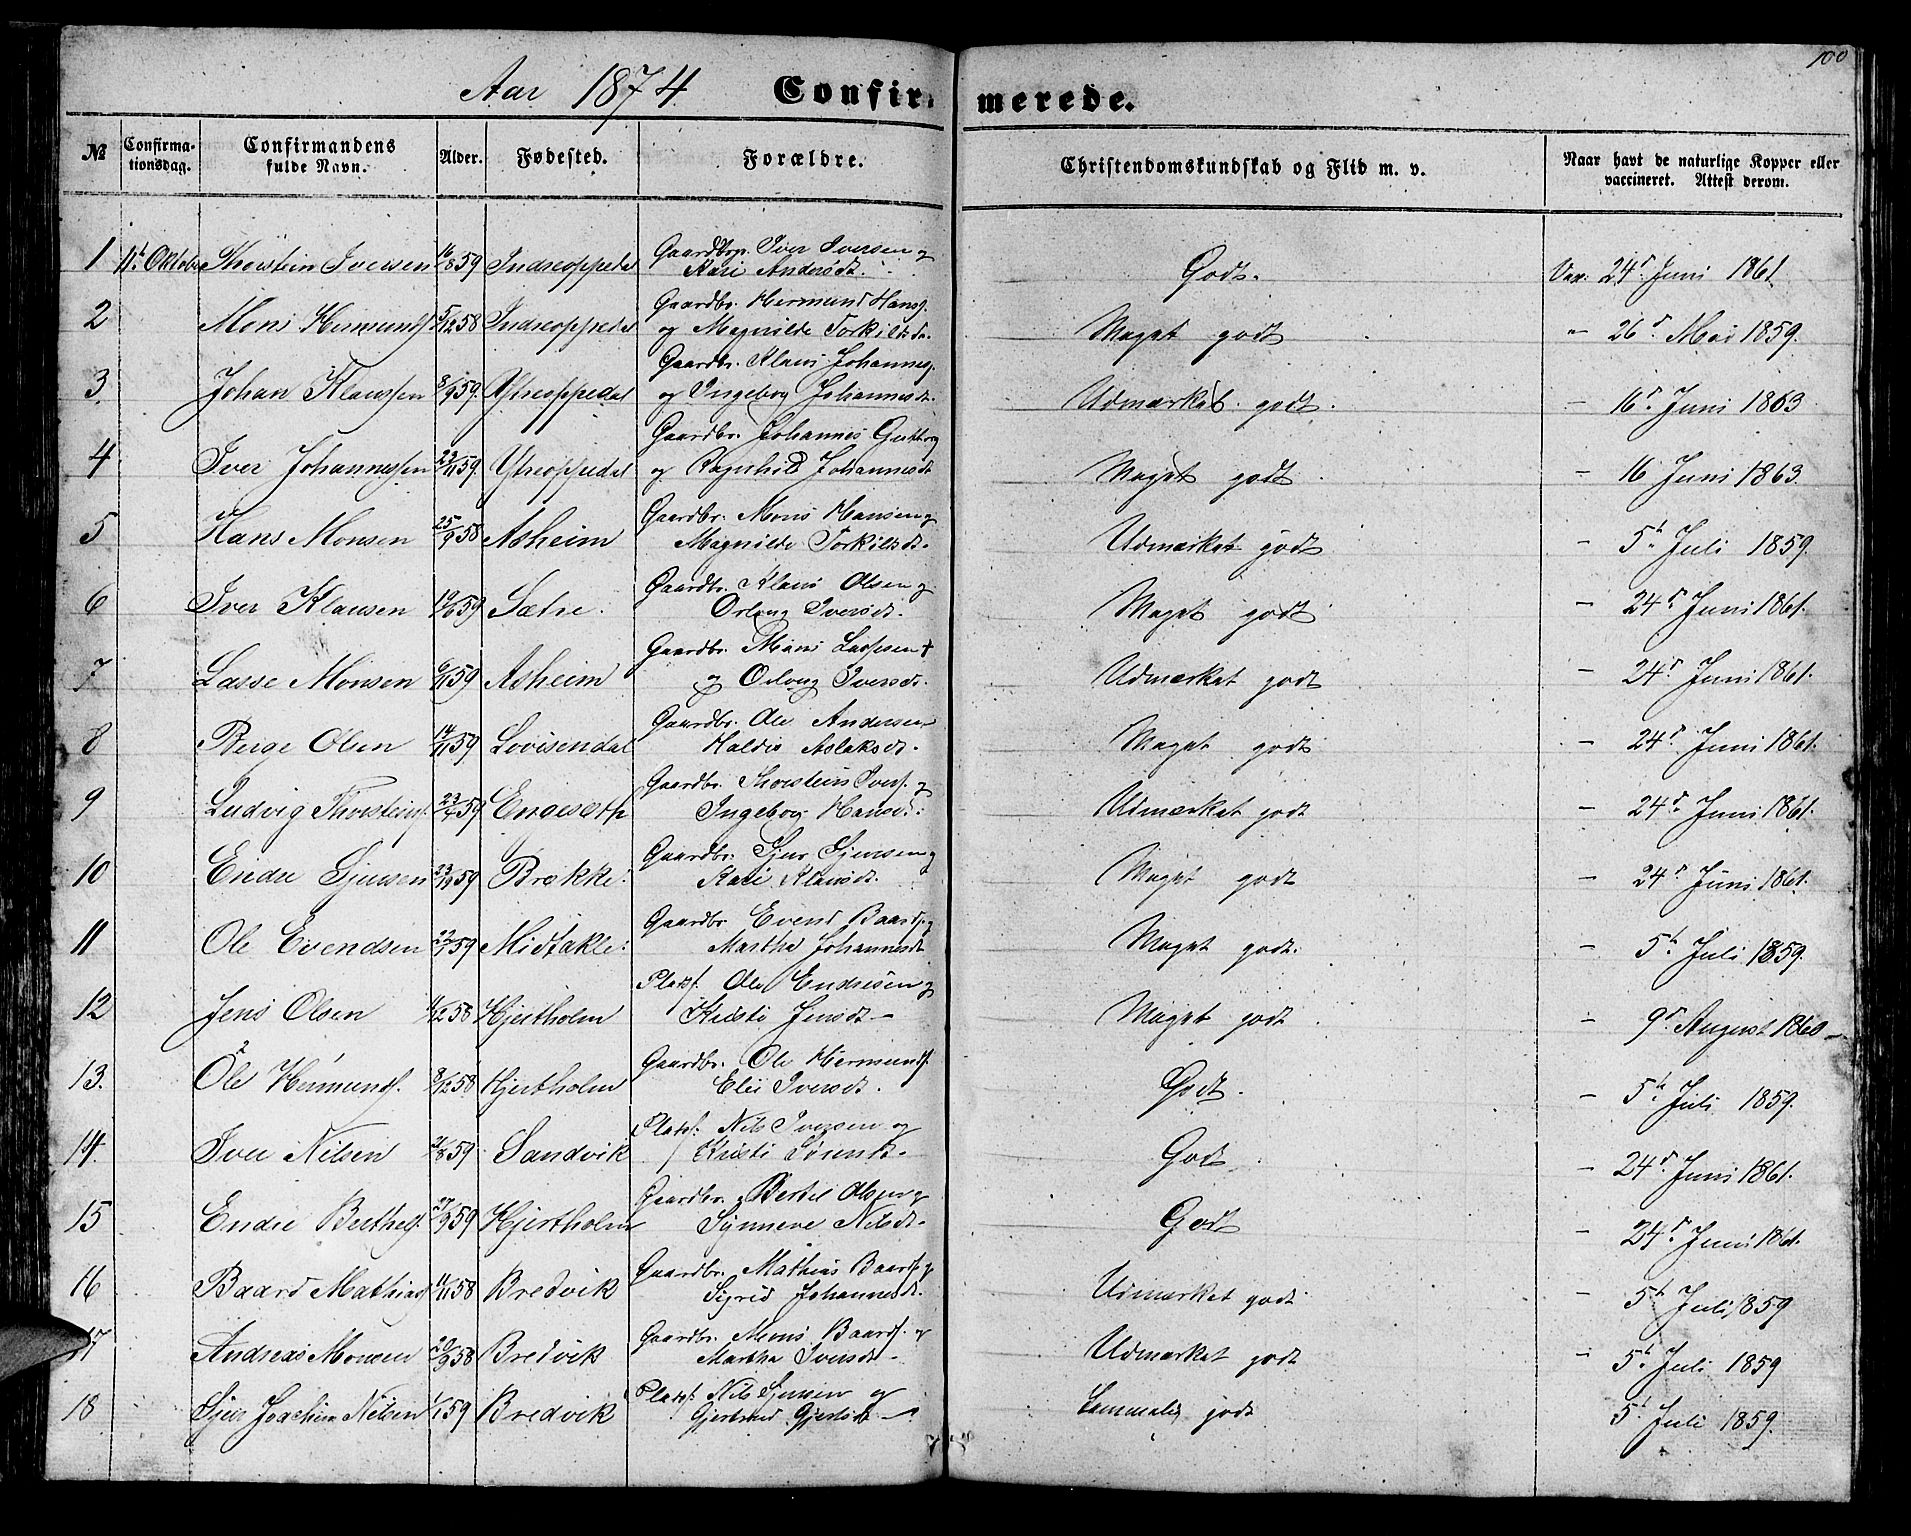 100
Aar 1874 Confirmerede.
№ Confirmationsdag. Confirmandens fulde Navn. Alder. Fødested. Forældre. Christendomskundskab og Flid m. v. Naar havt de naturlige Kopper eller vaccineret. Attest derom.
1 11te Oktober Thorstein Iversen 16/8 59 Indreoppedal Gaardbr. Iver Iversen og Kari Andersdt. Godt. Vax. 24de Juni 1861.
2 Mons Hermunds. 5/12 58 Indreoppedal Gaardbr. Hermund Hans. og Magnilde Torkildsdt. Meget godt " 26de Mai 1859.
3 Johan Klaussen 8/9 59. Ytreoppedal Gaardbr. Klaus Johannes. og Ingebor Johannesdt. Udmærket godt. - 16de Juni 1863
4 Iver Johannessen 23/11 59. Ytreoppedal Gaardbr. Johannes og Ragnhild Johannesdt Meget godt. - 16 Juni 1863.
5 Hans Monsen 25/9 58 Asheim Gaardbr. Mons Hansen og Magnilde Torkildsdt. Udmærket godt - 5te Juli 1859.
6 Iver Klausen 59 Sætre. Gaardbr. Klaus Olsen og Orlaug Iversdt. Meget godt - 24de Juni 1861.
7 Lasse Monsen 6/11 59 Asheim Gaardbr. Mons Lassesen + og Orlaug Iversdt. Udmærket godt - 24de Juni 1861.
8 Børge Olsen 14/11 59 Lovisendal Gaardbr. Ole Andersen Haldis Aslaksdt. Meget godt - 24de Juni 1861.
9 Ludvig Thorsteins. 59 Engesæth Gaardbr. Thorstein Ivers. og Ingebor Hansdt. Udmærket godt - 24de Juni 1861.
10 Endre Sjursen 59 Brække. Gaardbr. Sjur Sjursen og Kari Klausdt. Meget godt - 24de Juni 1861.
11 Ole Evendsen 59 Midtakle. Gaardbr. Evend Baards. og Martha Johannesdt Meget godt. - 5te Juli 1859.
12 Jens Olsen /12 58 Hjertholm Plads. Ole Endresen og Kristi Jensdt. Meget godt - 9de August 1860
13. Ole Hermunds. 8/12 58 Hjertholm Gaardbr. Ole Hermunds. Eli Iversdt. Godt. - 5te Juli 1859.
14. Iver Nilsen /8 59 Sandvik Plads. Nils Iversen og Kristi Sørensdt. Godt - 24de Juni 1861.
15 Endre Berthels. /9 59 Hjertholm Gaardbr. Bertel Olsen og Synneve Nilsdt. Godt - 24de Juni 1861.
16 Baard Mathias. 11/11 58 Bredvik Gaardbr. Mathias Baards. og Sigrid Johannesdt. Udmærket godt - 5te Juli 1859
17 Andreas Monsen 20/9 58 Bredvik Gaardbr. Mons Baards. og Martha Iversdt. Udmærket godt - 5te Juli 1859
18 Sjur Joachim Nilsen 1/1 59 Bredvik Plads. Nils Sjursen og Gjertrud Gjertsdt. Temmelig godt 5te Juli 1859.